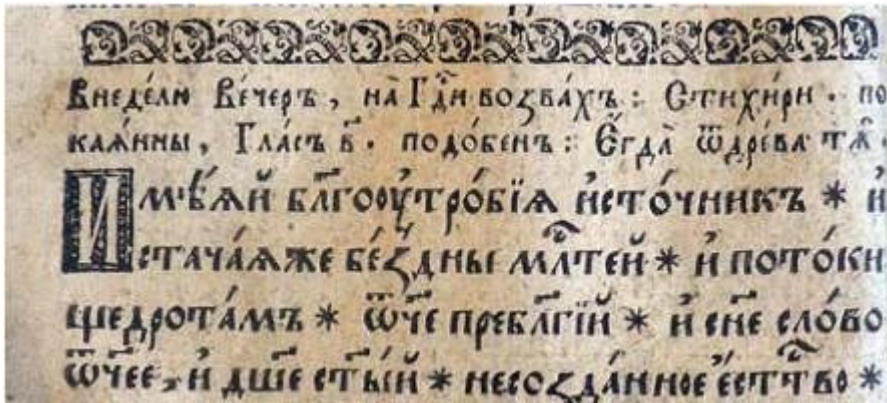 Внедѣ́лю Ве́черъ, на̀ Гд҇и возва́хъ: Стихи́ри. по
кая́нны, Гла́съ в҃. подо́бенъ: Є҆гда̀ ѿдре́ва тѧ̀.
И҆мѣ́ѧй бл҃гоꙋтро́бїѧ и҆сто́чникъ * и҆
стача́ѧже бе́здны мл҇тей * и҆ пото́ки
щедрота́мъ * ѿч҃е пребл҃гі́й * и҆ сн҃е сло́во
ѿч҃ее, и҆ дш҃е ст҃ы́й * несозда́нное є҆стт҇во *